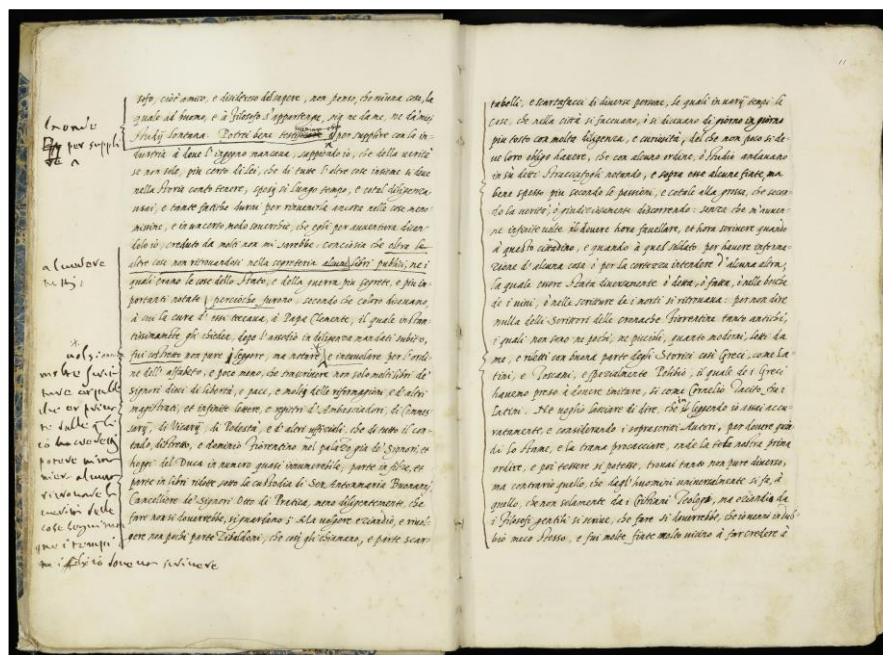 sofo, cioè amico, e disideroso del sapere, non penso, che niuna cosa, la
quale ad huomo, e à Filosofo s'appartenga, sia ne da me, ne da miei
studij lontana. Potrei bene per supplire con la in-
dustria à dove l'ingegno mancava, sappiendo io, che della verità
se non solo, più certo di lei, che di tutte l'altre cose insieme si deve
nella storia conto tenere, spesi sì lungo tempo, e cotal diligenza
usai, e tante fatiche durai per rinvenirla ancora nelle cose meno-
missime, e in un certo modo soverchie, che egli per avventura dican-
dolo io, creduto da molti non mi sarebbe: conciosia che oltra le
altre cose non ritrovandosi nella segreteria alcuni libri publici, ne i
quali erano le cose dello stato, e della guerra più segrete, e più im-
portanti notate, perciochè furono, secondo che coloro dicevano,
à la cura d'essi toccava, à Papa Clemente, il quale instan-
tissimamente gli chiedea, dopo l'assedio in diligenza mandati subito,
fui costretto non pure leggere, ma notare, e intavolare per l'ordi-
ne dell'alfabeto, e poco meno, che trascrivere non solo molti libri de'
signori dieci di libertà, e pace, e molti delle riformagioni, e d'altri
magistrati, et infinite lettere, e registri d'Ambasciadori, di Commes-
sarij, di Vicarij, di Podestà, e d'altri ufficiali, che di tutto il con-
tado, distretto, e dominio Fiorentino nel palazzo già de' Signori, et
hoggi del Duca in numero quasi innumerabile, parte in filze, et
parte in libri ridotte sotto la custodia di Ser Antonmaria Buonanni
Cancelliere de' Signori Otto di Pratica, meno diligentemente, che
fare non si dovrebbe, si guardano; Ma leggere eziandio, e rivol-
gere non pochi parte Zibaldoni, che così gli chiamano, e parte scar-
per suppli
re
molte scrit
ture
potere
ritrovare
delle
cose
dove non scrivere
11
tabelli, e scartafacci di diverse persone, le quali in varij tempi le
cose, che nella città si facevano, ò si dicevano di giorno in giorno
più tosto con molta diligenza, e curiosità, del che non poco si de-
ve loro obligo havere, che con alcuno ordine, ò studio andavano
in su detti stracciafogli notando, e sopra esse alcuna fiata, ma
bene spesso più secondo le passioni, e cotale alla grossa, che secon-
do la verità, ò giudiziosamente discorrendo: senza che m'avven-
ne infinite volte il dovere hora favellare, et hora scrivere quando
à questo cittadino, e quando à quel soldato per havere informa-
zione d'alcuna cosa ò per la certezza intendere d'alcuna altra,
la quale essere stata diversamente ò detta, ò fatta, ò nelle bocche
de i vivi, ò nelle scritture de i morti si ritrovava: per non dire
nulla delli Scrittori delle cronache Fiorentine tanto antichi,
i quali non sono ne pochi, ne piccioli, quanto moderni, letti da
me, e riletti con buona parte degli Storici così Greci, come La-
tini, e Toscani, e spezialmente Polibio, il quale de i Greci
havemo preso à dovere imitare, si come Cornelio Tacito tra i
latini. Ne voglio lasciare di dire, che leggendo io assai accu-
ratamente, e considerando i soprascritti Autori, per dovere quin-
di lo stame, e la trama procacciare, onde la tela nostra prima
ordire, e poi tessere si potesse, trovai tanto non pure diverso,
ma contrario quello, che dagli huomini universalmente si fa, à
quello, che non solamente da i Cristiani Teologi, ma eziandio da
i Filosofi gentili si scrive, che fare si doverrebbe, che io venni in dub-
bio meco stesso, e fui molte fiate molto vicino à far credere à